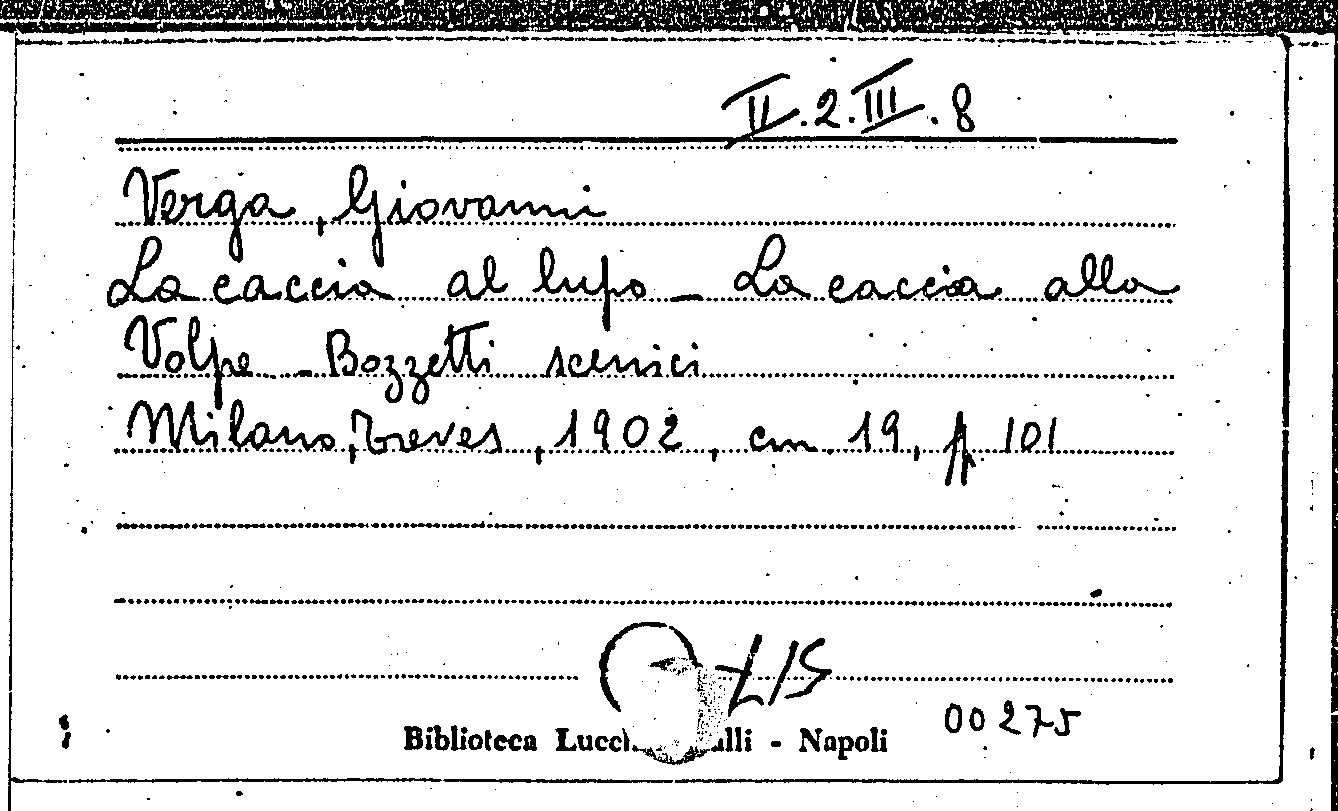 II.2.III.8
Verga, Giovanni
La caccia al lupo - La caccia alla
Volpe - Bozzetti scenici
Milano, Treves, 1902, cm. 19, pp. 101
LIS
Biblioteca - Napoli
00275